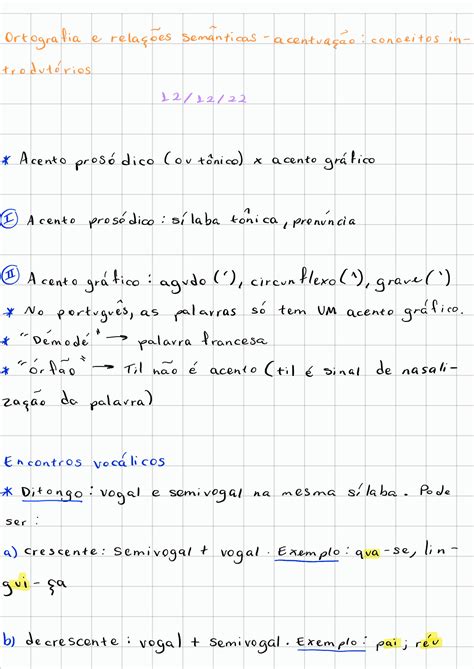 Ortografia e relações semânticas - acentuação: conceitos in-
trodutórios
12/12/22
* Acento prosódico (ou tônico) x acento gráfico
I Acento prosódico: sílaba tônica, pronúncia
II Acento gráfico: agudo (´), circunflexo (^), grave (`)
* No português, as palavras só tem UM acento gráfico.
* "Démodé" → palavra francesa
* "Órfão" → Til não é acento (til é sinal de nasali-
zação da palavra)
Encontros vocálicos
* Ditongo: vogal e semivogal na mesma sílaba. Pode
ser:
a) crescente: semivogal + vogal. Exemplo: qua-se, lin-
gui-ça
b) decrescente: vogal + semivogal. Exemplo: pai; réu